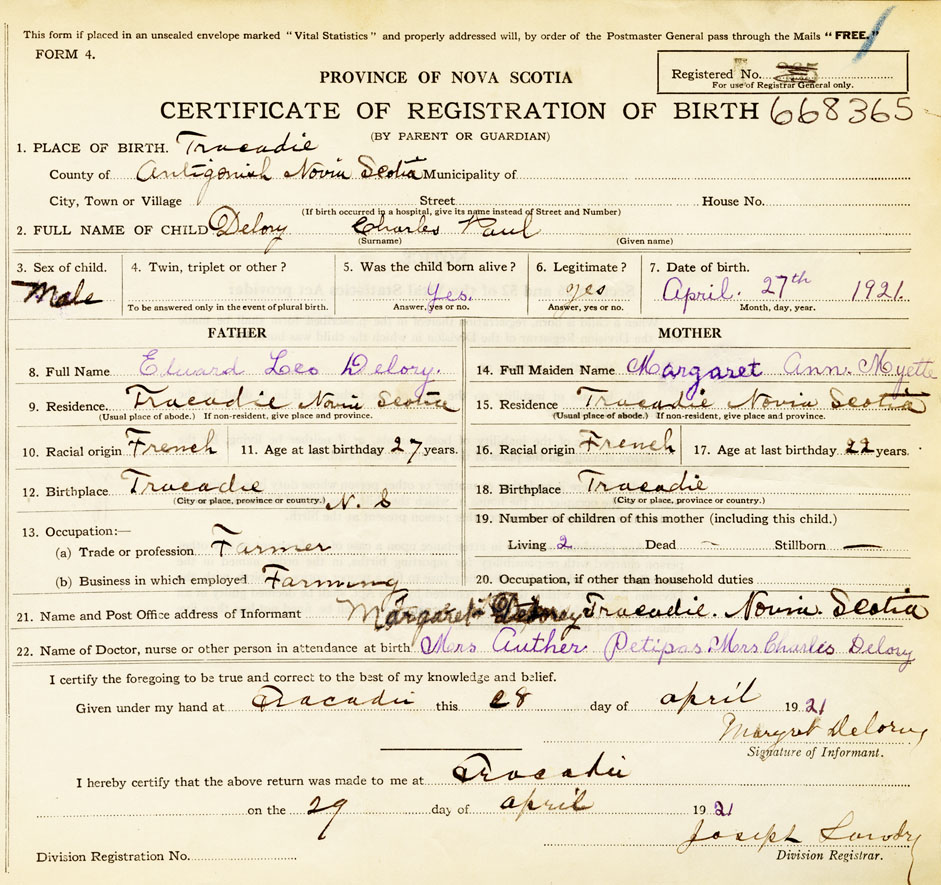 This form if placed in an unsealed envelope marked "Vital Statistics" and properly addressed will, by order of the Postmaster General pass through the Mails "FREE."
FORM 4.
PROVINCE OF NOVA SCOTIA
Registered No.
For use of Registrar General only.
CERTIFICATE OF REGISTRATION OF BIRTH 668365
(BY PARENT OR GUARDIAN)
1. PLACE OF BIRTH. Tracadie
County of Antigonish Novia Scotia Municipality of
City, Town or Village Street House No.
(If birth occurred in a hospital, give its name instead of Street and Number)
2. FULL NAME OF CHILD Delory Charles Paul
(Surname) (Given name)
3. Sex of child. 4. Twin, triplet or other? 5. Was the child born alive? 6. Legitimate? 7. Date of birth.
Male Yes. yes April. 27th 1921.
To be answered only in the event of plural birth. Answer, yes or no. Answer, yes or no. Month, day, year.
FATHER MOTHER
8. Full Name Edward Leo Delory. 14. Full Maiden Name Margaret Ann. Myette
9. Residence. Tracadie Novia Scotia 15. Residence Tracadie Novia Scotia
(Usual place of abode.) If non-resident, give place and province. (Usual place of abode.) If non-resident, give place and province.
10. Racial origin French 11. Age at last birthday 27 years. 16. Racial origin French 17. Age at last birthday 22 years.
12. Birthplace Tracadie 18. Birthplace Tracadie
(City or place, province or country.) N. S (City or place, province or country.)
13. Occupation:— 19. Number of children of this mother (including this child.)
(a) Trade or profession Farmer Living 2 Dead — Stillborn —
(b) Business in which employed Farming 20. Occupation, if other than household duties
21. Name and Post Office address of Informant Margaret Delorey Tracadie. Novia Scotia
22. Name of Doctor, nurse or other person in attendance at birth Mrs Auther Petipas Mrs Charles Delory
I certify the foregoing to be true and correct to the best of my knowledge and belief.
Given under my hand at Tracadie this 28 day of april 1921
Margret Delorey
Signature of Informant.
I hereby certify that the above return was made to me at Tracadie
on the 29 day of april 1921
Joseph
Division Registration No. Division Registrar.